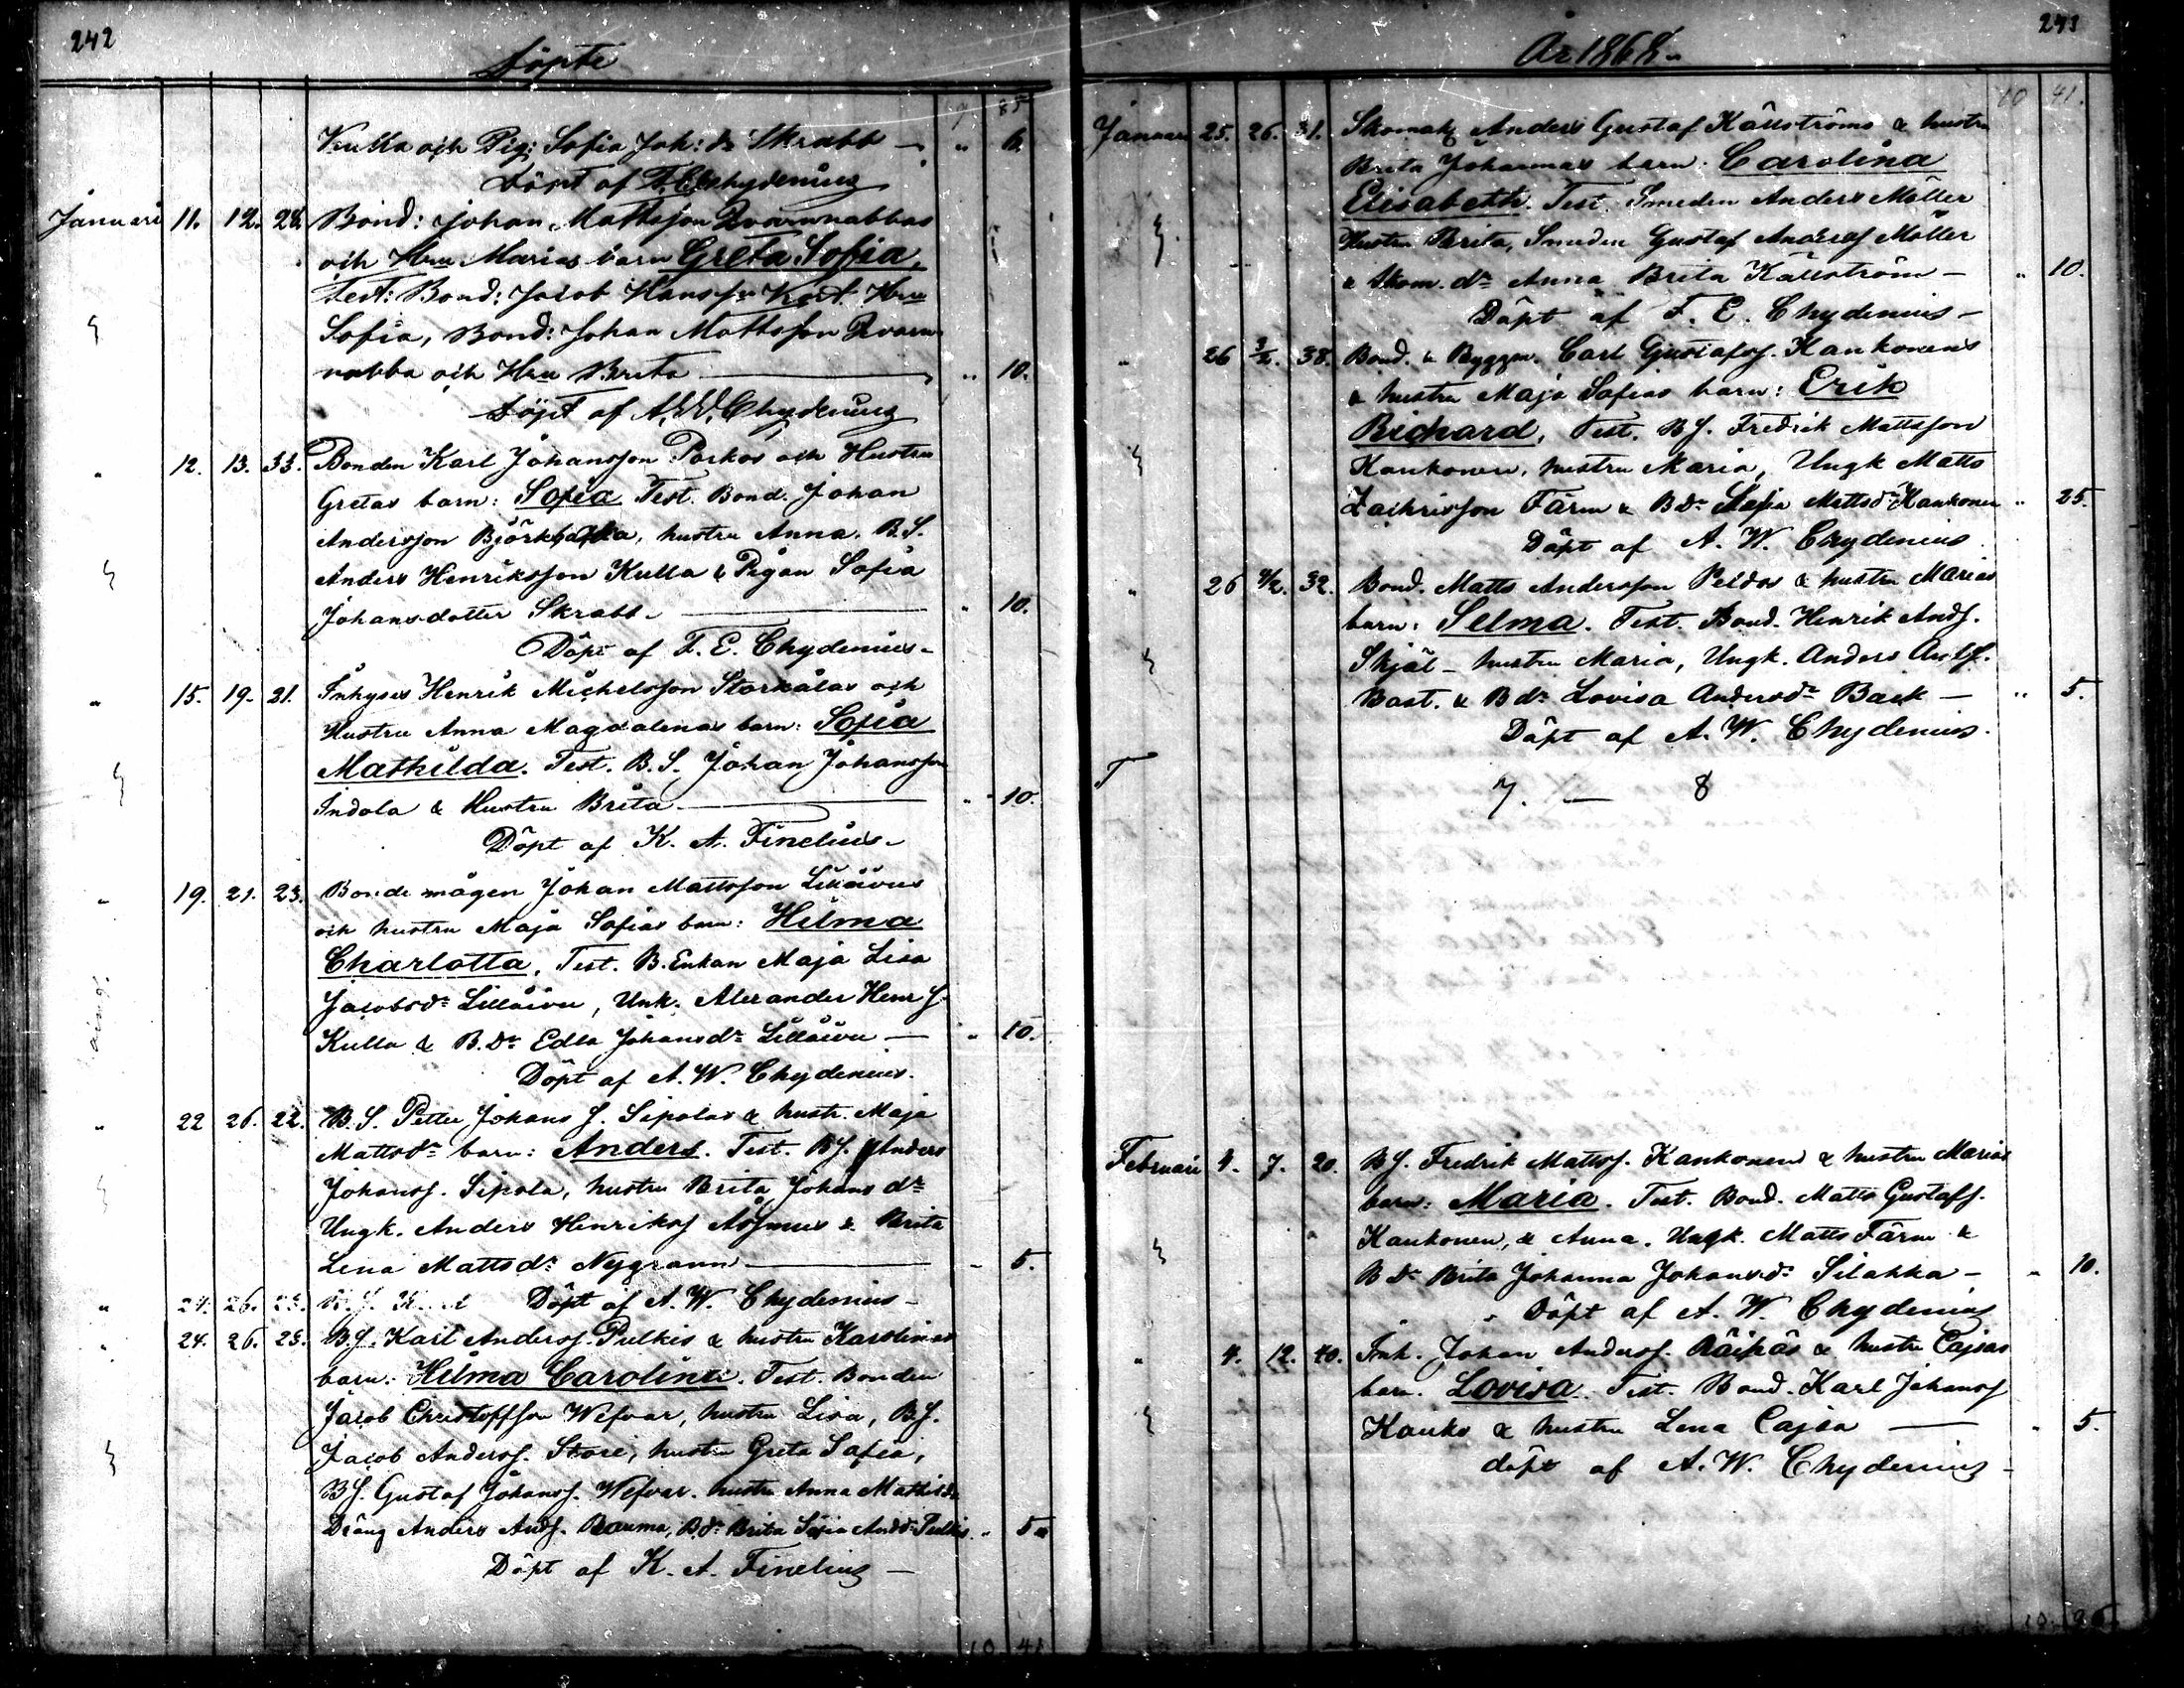 242
Döpte
9 85
Kulla och Pig: Sofia Joh: dr Skrabb — " 6.
Döpt af F. E. Chydenius
Januari 11. 12. 28. Bond: Johan Mattsson Qvarnnabbas
och Hru Marias barn Greta Sofia.
Test: Bond: Jacob Hansson Kort Hru
Sofia, Bond: Johan Mattsson Qvarn
nabba och Hru Brita — " 10.
Döpt af A. W. Chydenius
" 12. 13. 33. Bonden Karl Johansson Porkos och Hustru
Gretas barn: Sofia Test. Bond. Johan
Andersson Björkbacka, hustru Anna. B.S.
Anders Henriksson Kulla & Pigan Sofia
Johansdotter Skrabb — " 10.
Döpt af F. E. Chydenius —
" 15. 19. 21. Inhyses Henrik Michelsson Storkålas och
Hustru Anna Magdalenas barn: Sofia
Mathilda. Test. B.S. Johan Johansson
Indola & Hustru Brita — " 10.
Döpt af K. A. Finelius —
" 19. 21. 23. Bonde mågen Johan Mattsson
och hustru Maja Sofias barn: Hilma
Charlotta. Test. B. Enkan Maja Lisa
Jacobsdr Lillåivu, Unk. Alexander Henr S.
Kulla & B. Dr Edla Johansdr Lillåivu — " 10.
Döpt af A. W. Chydenius.
" 22 26. 22. B. S. Petter Johans S. Sipolas & hustr. Maja
Mattsdr barn: Anders. Test. BS. Anders
Johanss. Sipola, hustru Brita Johans dr
Ungk. Anders Henrikss Assmus & Brita
Lena Mattsdr Nygrann — " 5.
" 24. 26. 23. Döpt af A. W. Chydenius —
" 24. 26. 23. B.S. Karl Anderss. Pulkis & hustru Karolinas
barn. Hilma Carolina. Test. Bonden
Jacob Christoffsson Wefvar, hustru Lisa, BS.
Jacob Anderss. Store, hustru Greta Sofia,
BS. Gustaf Johanss. Wefvar. hustru Anna
Dräng Anders Ands. Rauma, B.dr Brita Sofia Andd: Pulkis " 5
Döpt af K. A. Finelius —
10 41
243
År 1868.
10 41.
Januari 25. 26. 31. Skomak Anders Gustaf Källströms & hustru
Brita Johannas barn. Carolina
Elisabeth. Test. Smeden Anders Möller
Hustru Brita, Smeden Gustaf Möller
& Skom. dr Anna Brita Källström — " 10.
Döpt af F. E. Chydenius —
" 26 3/2. 38. Bond. & Byggm. Carl Gustafss. Kankonens
& hustru Maja Sofias barn: Erik
Richard, Test. BS. Fredrik Mattsson
Kankonen, hustru Maria, Ungk Matts
Zachrisson Färm & B dr Sofia Mattsdr Kankonen " 25.
Döpt af A. W. Chydenius.
" 26 4/2. 32. Bond. Matts Andersson Peldos & hustru Marias
barn: Selma. Test. Bond. Henrik Ands.
Skjäl — hustru Maria, Ungk. Anders Ands.
Bast. & B dr Lovisa Andersdr Back — " 5.
Döpt af A. W. Chydenius.
7. — 8
Februari 4. 7. 20. BS. Fredrik Mattss. Kankonens & hustru Marias
barn: Maria. Test. Bond. Matts Gustafs.
Kankonen, & Anna. Ungk. Matts Färm &
B Dr Brita Johanna Johansdr Silahka — " 10.
Döpt af A. W. Chydenius
" 4. 12. 40. Inh. Johan Anderss. Räihäs & hustru Cajsas
barn. Lovisa. Test. Bond. Karl Johanss
Kauko & hustru Lena Cajsa — " 5.
döpt af A. W. Chydenius —